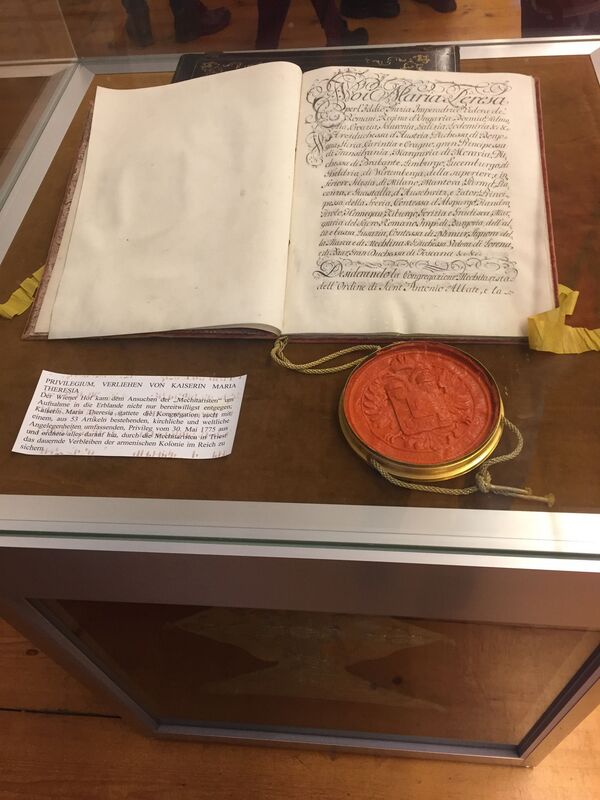 Noi Maria Teresa
per l'Iddio Grazia Imperadrice Vedova de'
Romani, Regina d'Ungaria, Boemia, Dalma-
zia, Croazia, Schiavonia, Galizia, Lodomiria &c &c
Arciduchessa d'Austria, Duchessa di Borgo-
gna, Stiria, Carintia e Cragno, gran Principessa
di Transilvania, Margravia di Moravia, Du-
chessa di Brabante, Limburgo, Lucemburgo, di
Gheldria, di Wirtemberga, della superiore, e in-
feriore Slesia, di Milano, Mantova, Parma, Pia-
cenza, e Guastalla, d'Auschwitz, e Zator, Prin-
cipessa della Svevia, Contessa d'Absburgo, Fiandra,
Tirolo, Hannegau, Kiburgo, Gorizia e Gradisca, Mar-
gravia del Sacro Romano Imp: di Burgovia, dell'al-
ta e bassa Lusazia, Contessa di Namur, Signora del-
la Marca e di Mechlina &c Duchessa Vedova di Lorena,
e di Bar, Gran Duchessa di Toscana &c &c
Desiderando la Congregazione Mechitarista
dell'Ordine di Sant' Antonio Abbate, e la
PRIVILEGIUM, VERLIEHEN VON KAISERIN MARIA
THERESIA
Der Wiener Hof kam dem Ansuchen der „Mechitaristen“ um
Aufnahme in die Erblande nicht nur bereitwilligst entgegen;
Kaiserin Maria Theresia stattete die Kongregation auch mit
einem, aus 53 Artikeln bestehenden, kirchliche und weltliche
Angelegenheiten umfassenden, Privileg vom 30. Mai 1775 aus
und ordnete alles darauf hin, durch die Mechitaristen in Triest
das dauernde Verbleiben der armenischen Kolonie im Reich zu
sichern.